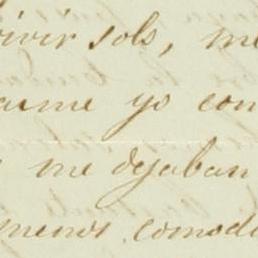 vivir solo, me
arme yo con
me dejaban
menos comod